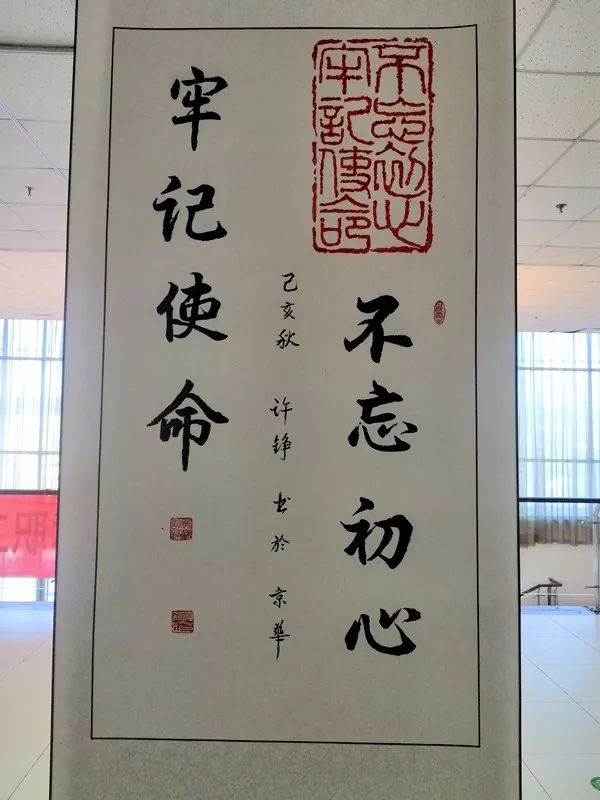 不忘初心
牢记使命
不忘初心
牢記使命
己亥秋 许铮 书於京華
职工